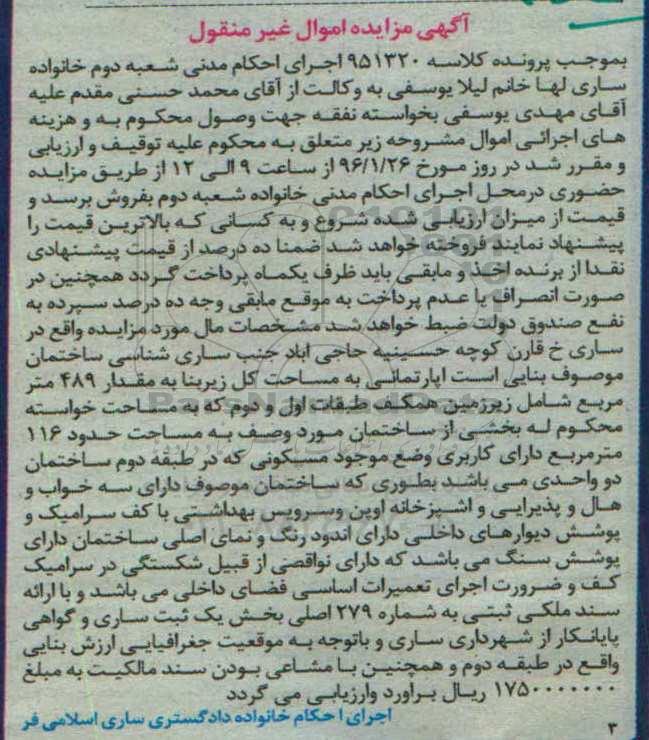 آگهی مزایده اموال غیر منقول
بموجب پرونده کلاسه ۹۵۱۳۲۰ اجرای احکام مدنی شعبه دوم خانواده
ساری لها خانم لیلا یوسفی به وکالت از آقای محمد حسنی مقدم علیه
آقای مهدی یوسفی بخواسته نفقه جهت وصول محکوم به و هزینه
های اجرائی اموال مشروحه زیر متعلق به محکوم علیه توقیف و ارزیابی
و مقرر شد در روز مورخ ۹۶/۱/۲۶ از ساعت ۹ الی ۱۲ از طریق مزایده
حضوری درمحل اجرای احکام مدنی خانواده شعبه دوم بفروش برسد و
قیمت از میزان ارزیابی شده شروع و به کسانی که بالاترین قیمت را
پیشنهاد نمایند فروخته خواهد شد ضمنا ده درصد از قیمت پیشنهادی
نقدا از برنده اخذ و مابقی باید ظرف یکماه پرداخت گردد همچنین در
صورت انصراف یا عدم پرداخت به موقع مابقی وجه ده درصد سپرده به
نفع صندوق دولت ضبط خواهد شد مشخصات مال مورد مزایده واقع در
ساری خ قارن کوچه حسینیه حاجی اباد جنب ساری شناسی ساختمان
موصوف بنایی است اپارتمانی به مساحت کل زیربنا به مقدار ۴۸۹ متر
مربع شامل زیرزمین همکف طبقات اول و دوم که به مساحت خواسته
محکوم له بخشی از ساختمان مورد وصف به مساحت حدود ۱۱۶
مترمربع دارای کاربری وضع موجود مسکونی که در طبقه دوم ساختمان
دو واحدی می باشد بطوری که ساختمان موصوف دارای سه خواب و
هال و پذیرایی و اشپزخانه اوپن وسرویس بهداشتی با کف سرامیک و
پوشش دیوارهای داخلی دارای اندود رنگ و نمای اصلی ساختمان دارای
پوشش سنگ می باشد که دارای نواقصی از قبیل شکستگی در سرامیک
کف و ضرورت اجرای تعمیرات اساسی فضای داخلی می باشد و با ارائه
سند ملکی ثبتی به شماره ۲۷۹ اصلی بخش یک ثبت ساری و گواهی
پایانکار از شهرداری ساری و باتوجه به موقعیت جغرافیایی ارزش بنایی
واقع در طبقه دوم و همچنین با مشاعی بودن سند مالکیت به مبلغ
۱۷۵۰۰۰۰۰۰۰ ریال براورد وارزیابی می گردد
اجرای احکام خانواده دادگستری ساری اسلامی فر
۳
ParsNamadData